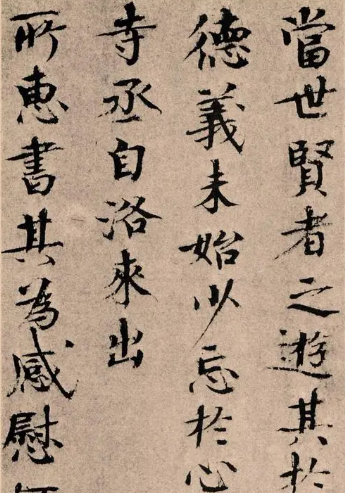 當世賢者之遊其於
德義未始以忘於心
寺丞自洛來出
所惠書其為感慰